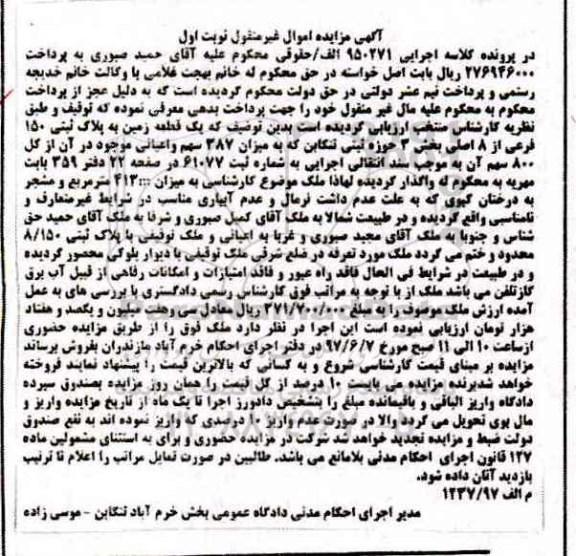 آگهی مزایده اموال غیرمنقول نوبت اول
در پرونده کلاسه اجرایی ۹۵۰۲۷۱ الف/حقوقی محکوم علیه آقای حمید صبوری به پرداخت
۲۷۶۹۴۶۰۰۰ ریال بابت اصل خواسته در حق محکوم له خانم بهجت غلامی با وکالت خانم خدیجه
رستمی و پرداخت نیم عشر دولتی در حق دولت محکوم گردیده است که به دلیل عجز از پرداخت
محکوم به محکوم علیه مال غیر منقول خود را جهت پرداخت بدهی معرفی نموده که توقیف و طبق
نظریه کارشناس منتخب ارزیابی گردیده است بدین توصیف که یک قطعه زمین به پلاک ثبتی ۱۵۰
فرعی از ۸ اصلی بخش ۳ حوزه ثبتی تنکابن که به میزان ۳۸۷ سهم واعیانی موجود در آن از کل
۸۰۰ سهم آن به موجب سند انتقالی اجرایی به شماره ثبت ۶۱۰۷۷ در صفحه ۲۲ دفتر ۳۵۹ بابت
مهریه به محکوم له واگذار گردیده لهاذا ملک موضوع کارشناسی به میزان ۴۱۳ مترمربع و مشجر
به درختان کیوی که به علت عدم داشت نرمال و عدم آبیاری مناسب در شرایط غیرمتعارف و
نامناسبی واقع گردیده و در طبیعت شمالا به ملک آقای کمیل صبوری و شرقا به ملک آقای حمید حق
شناس و جنوبا به ملک آقای مجید صبوری و غربا به اعیانی و ملک توقیفی با پلاک ثبتی ۸/۱۵۰
محدود و ختم می گردد ملک مورد تعرفه در ضلع شرقی ملک توقیفی با دیوار بلوکی محصور گردیده
و در طبیعت در شرایط فی الحال فاقد راه عبور و فاقد امتیازات و امکانات رفاهی از قبیل آب برق
گازتلفن می باشد ملک از با توجه به مراتب فوق کارشناس رسمی دادگستری با بررسی های به عمل
آمده ارزش ملک موصوف را به مبلغ ۳۷۱/۷۰۰/۰۰۰ ریال معادل سی وهفت میلیون و یکصد و هفتاد
هزار تومان ارزیابی نموده است این اجرا در نظار دارد ملک فوق را از طریق مزایده حضوری
ازساعت ۱۰ الی ۱۱ صبح مورخ ۹۷/۶/۷ در دفتر اجرای احکام خرم آباد مازندران بفروش برساند
مزایده بر مبنای قیمت کارشناسی شروع و به کسانی که بالاترین قیمت را پیشنهاد نمایند فروخته
خواهد شدبرنده مزایده می بایست ۱۰ درصد از کل قیمت را همان روز مزایده بصندوق سپرده
دادگاه واریز الباقی و باقیمانده مبلغ را بتشخیص دادورز اجرا تا یک ماه از تاریخ مزایده واریز و
مال بوی تحویل می گردد والا در صورت عدم واریز ۱۰ درصدی که واریز نموده اند به نفع صندوق
دولت ضبط و مزایده تجدید خواهد شد شرکت در مزایده حضوری و برای به استثنای مشمولین ماده
۱۲۷ قانون اجرای احکام مدنی بلامانع می باشد. طالبین در صورت تمایل مراتب را اعلام تا ترتیب
بازدید آنان داده شود.
م الف ۱۲۳۷/۹۷
مدیر اجرای احکام مدنی دادگاه عمومی بخش خرم آباد تنکابن - موسی زاده